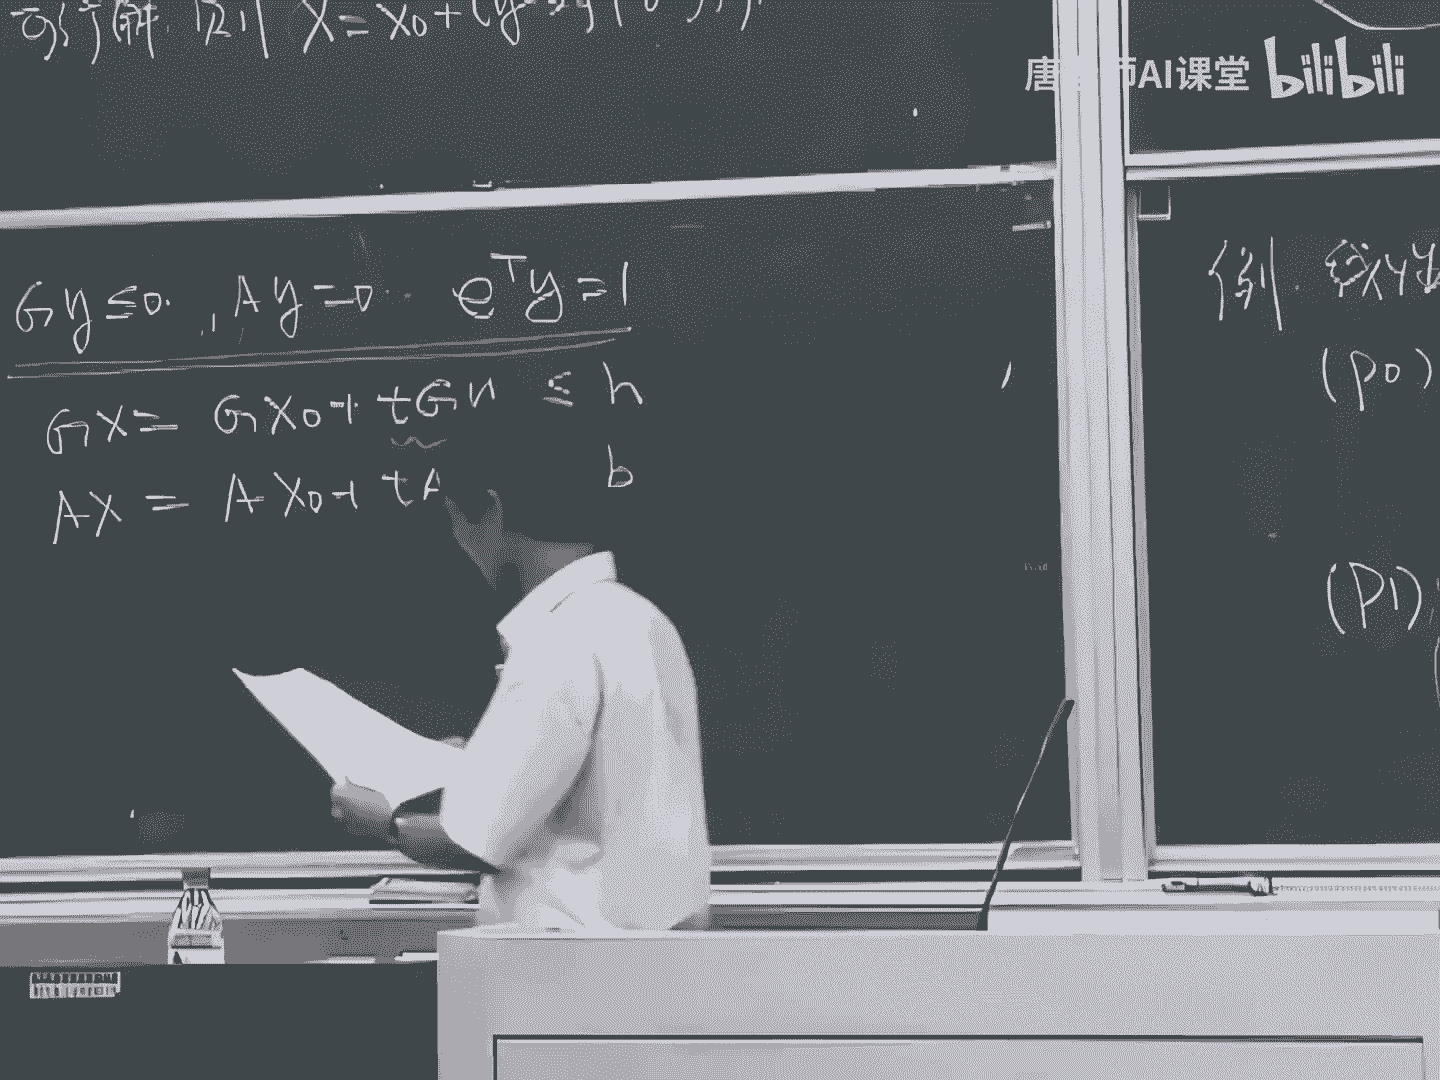 可行解 则 X = X0 +
唐 师AI课堂 bilibili
Gy ≤ 0. , Ay = 0 e^T y = 1
GX = GX0 + tG ≤ h
AX = AX0 + tA b
例.
(P0)
(P1)